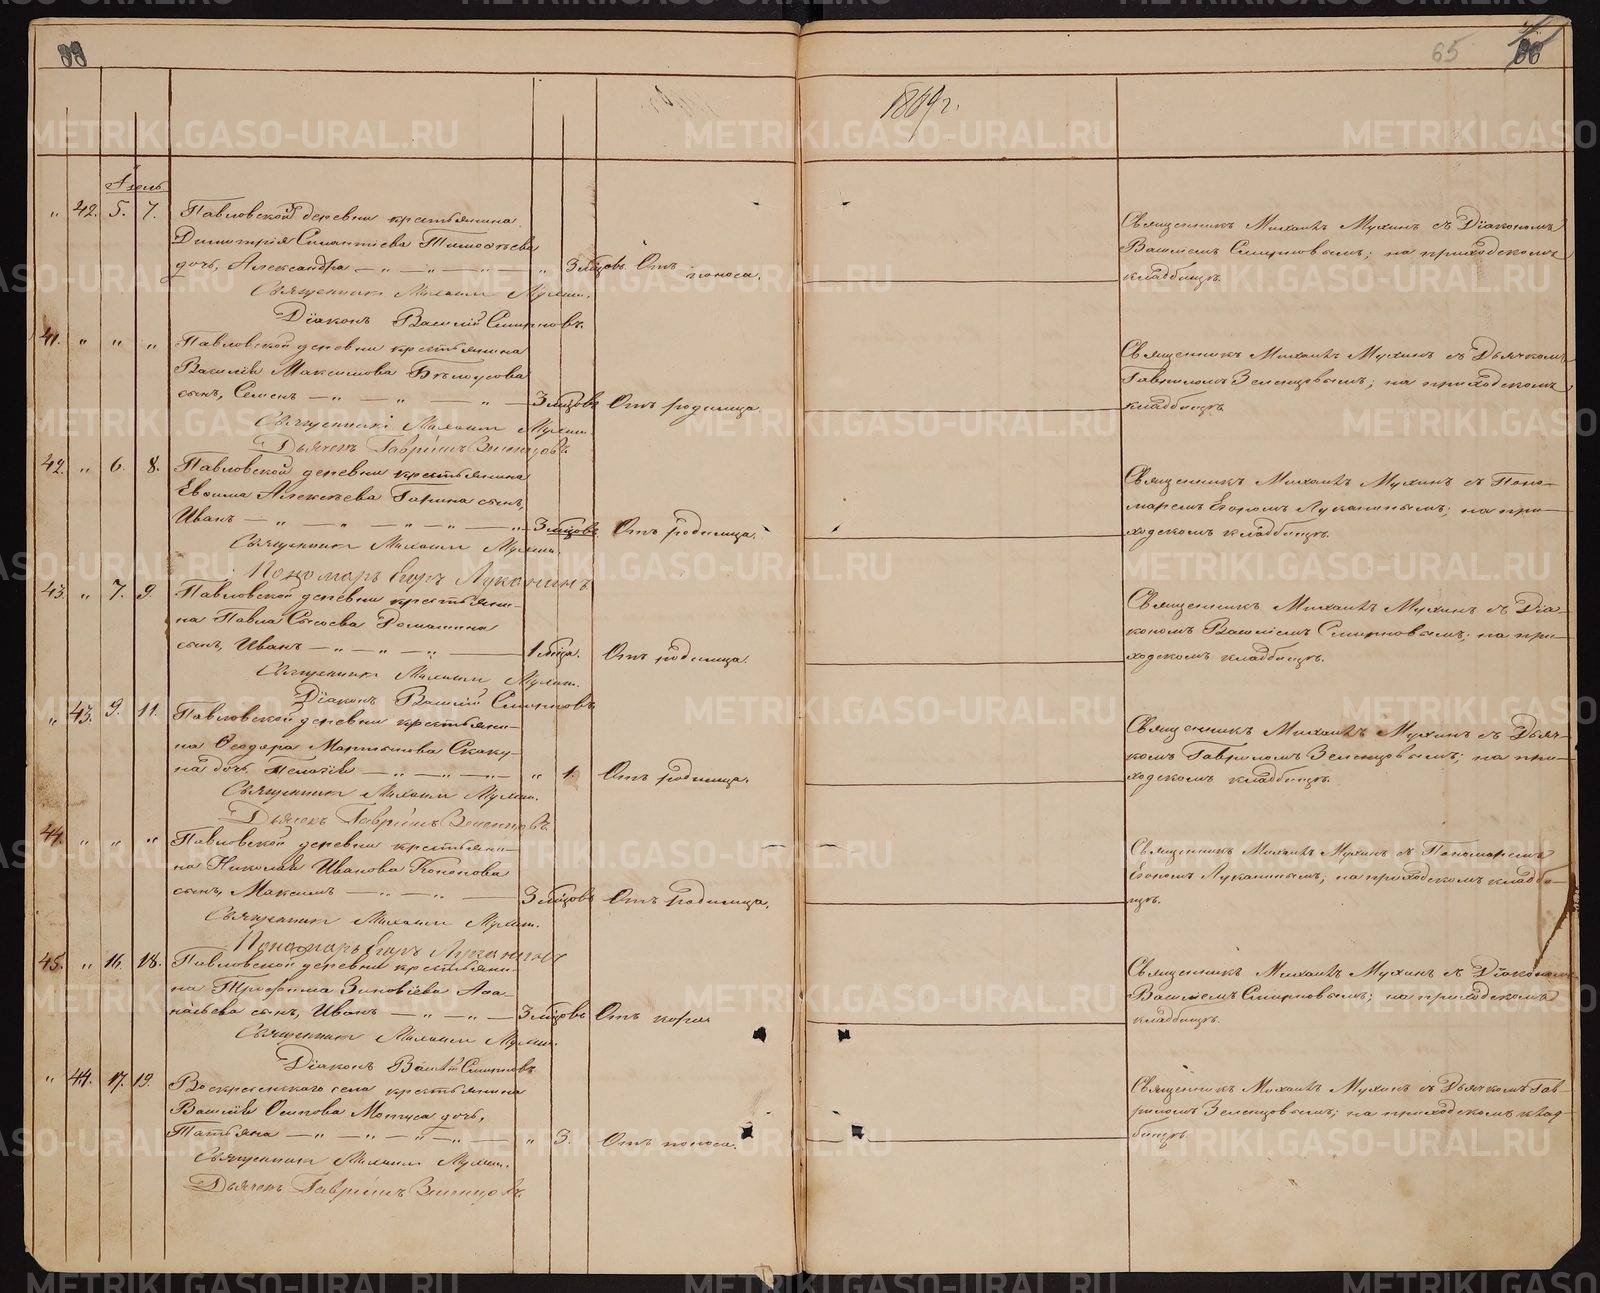 65
1869 г.
Іюль
„ 42. 5. 7. Павловской деревни крестьянина
Димитрія Силантіева Тимоѳѣева
дочь, Александра — „ — „ — „ — „ 3 мѣсцовъ. Отъ поноса.
Священникъ Михаилъ Мухинъ.
Діаконъ Василій Смирновъ.
Священникъ Михаилъ Мухинъ съ Діакономъ
Василіемъ Смирновымъ; на приходскомъ
кладбищѣ.
41. „ „ „ Павловской деревни крестьянина
Василія Максимова Бѣлоусова
сынъ, Семенъ — „ — „ — 3 мѣсцовъ Отъ родимца.
Священникъ Михаилъ Мухинъ.
Дьячекъ Гавріилъ Зеленцовъ
Священникъ Михаилъ Мухинъ съ Дьячкомъ
Гавриломъ Зеленцовымъ; на приходскомъ
кладбищѣ.
42. „ 6. 8. Павловской деревни крестьянина
Евѳима Алексѣева Гарина сынъ,
Иванъ — „ — „ — „ — „ — „ — 3 мѣсцовъ. Отъ родимца.
Священникъ Михаилъ Мухинъ.
Пономарь Егоръ Луканинъ.
Священникъ Михаилъ Мухинъ съ Поно-
маремъ Егоромъ Луканинымъ; на при-
ходскомъ кладбищѣ.
43. „ 7. 9. Павловской деревни крестьяни-
на Павла Сысоева Ромашина
сынъ, Иванъ — „ — „ — „ — 1 мѣсца. Отъ родимца.
Священникъ Михаилъ Мухинъ.
Діаконъ Василій Смирновъ
Священникъ Михаилъ Мухинъ съ Діа-
кономъ Василіемъ Смирновымъ; на при-
ходскомъ кладбищѣ.
„ 43. 9. 11. Павловской деревни крестьяни-
на Ѳеодора Мартынова Скаку-
на дочь Пелагія — „ — „ — „ — „ 1. Отъ родимца.
Священникъ Михаилъ Мухинъ.
Дьячекъ Гавріилъ Зеленцовъ.
Священникъ Михаилъ Мухинъ съ Дьяч-
комъ Гавриломъ Зеленцовымъ; на при-
ходскомъ кладбищѣ.
44. „ „ „ Павловской деревни крестьяни-
на Николая Иванова Кононова
сынъ, Максимъ — „ — „ — 3 мѣсцовъ Отъ родимца.
Священникъ Михаилъ Мухинъ.
Пономарь Егоръ Луканинъ
Священникъ Михаилъ Мухинъ съ Пономаремъ
Егоромъ Луканинымъ; на приходскомъ кладби-
щѣ.
45. „ 16. 18. Павловской деревни крестьяни-
на Трифима Зиновіева Аѳа-
насьева сынъ, Иванъ — „ — „ — 3 мѣсцовъ Отъ кори
Священникъ Михаилъ Мухинъ.
Діаконъ Василій Смирновъ
Священникъ Михаилъ Мухинъ съ Діакономъ
Василіемъ Смирновымъ; на приходскомъ
кладбищѣ.
„ 44. 17. 19. Воскресенскаго села крестьянина
Василія Осипова дочь,
Татьяна — „ — „ — „ — „ — „ 3. Отъ поноса.
Священникъ Михаилъ Мухинъ.
Дьячекъ Гавріилъ Зеленцовъ.
Священникъ Михаилъ Мухинъ съ Дьячкомъ Гав-
риломъ Зеленцовымъ; на приходскомъ клад-
бищѣ.
METRIKI.GASO-URAL.RU